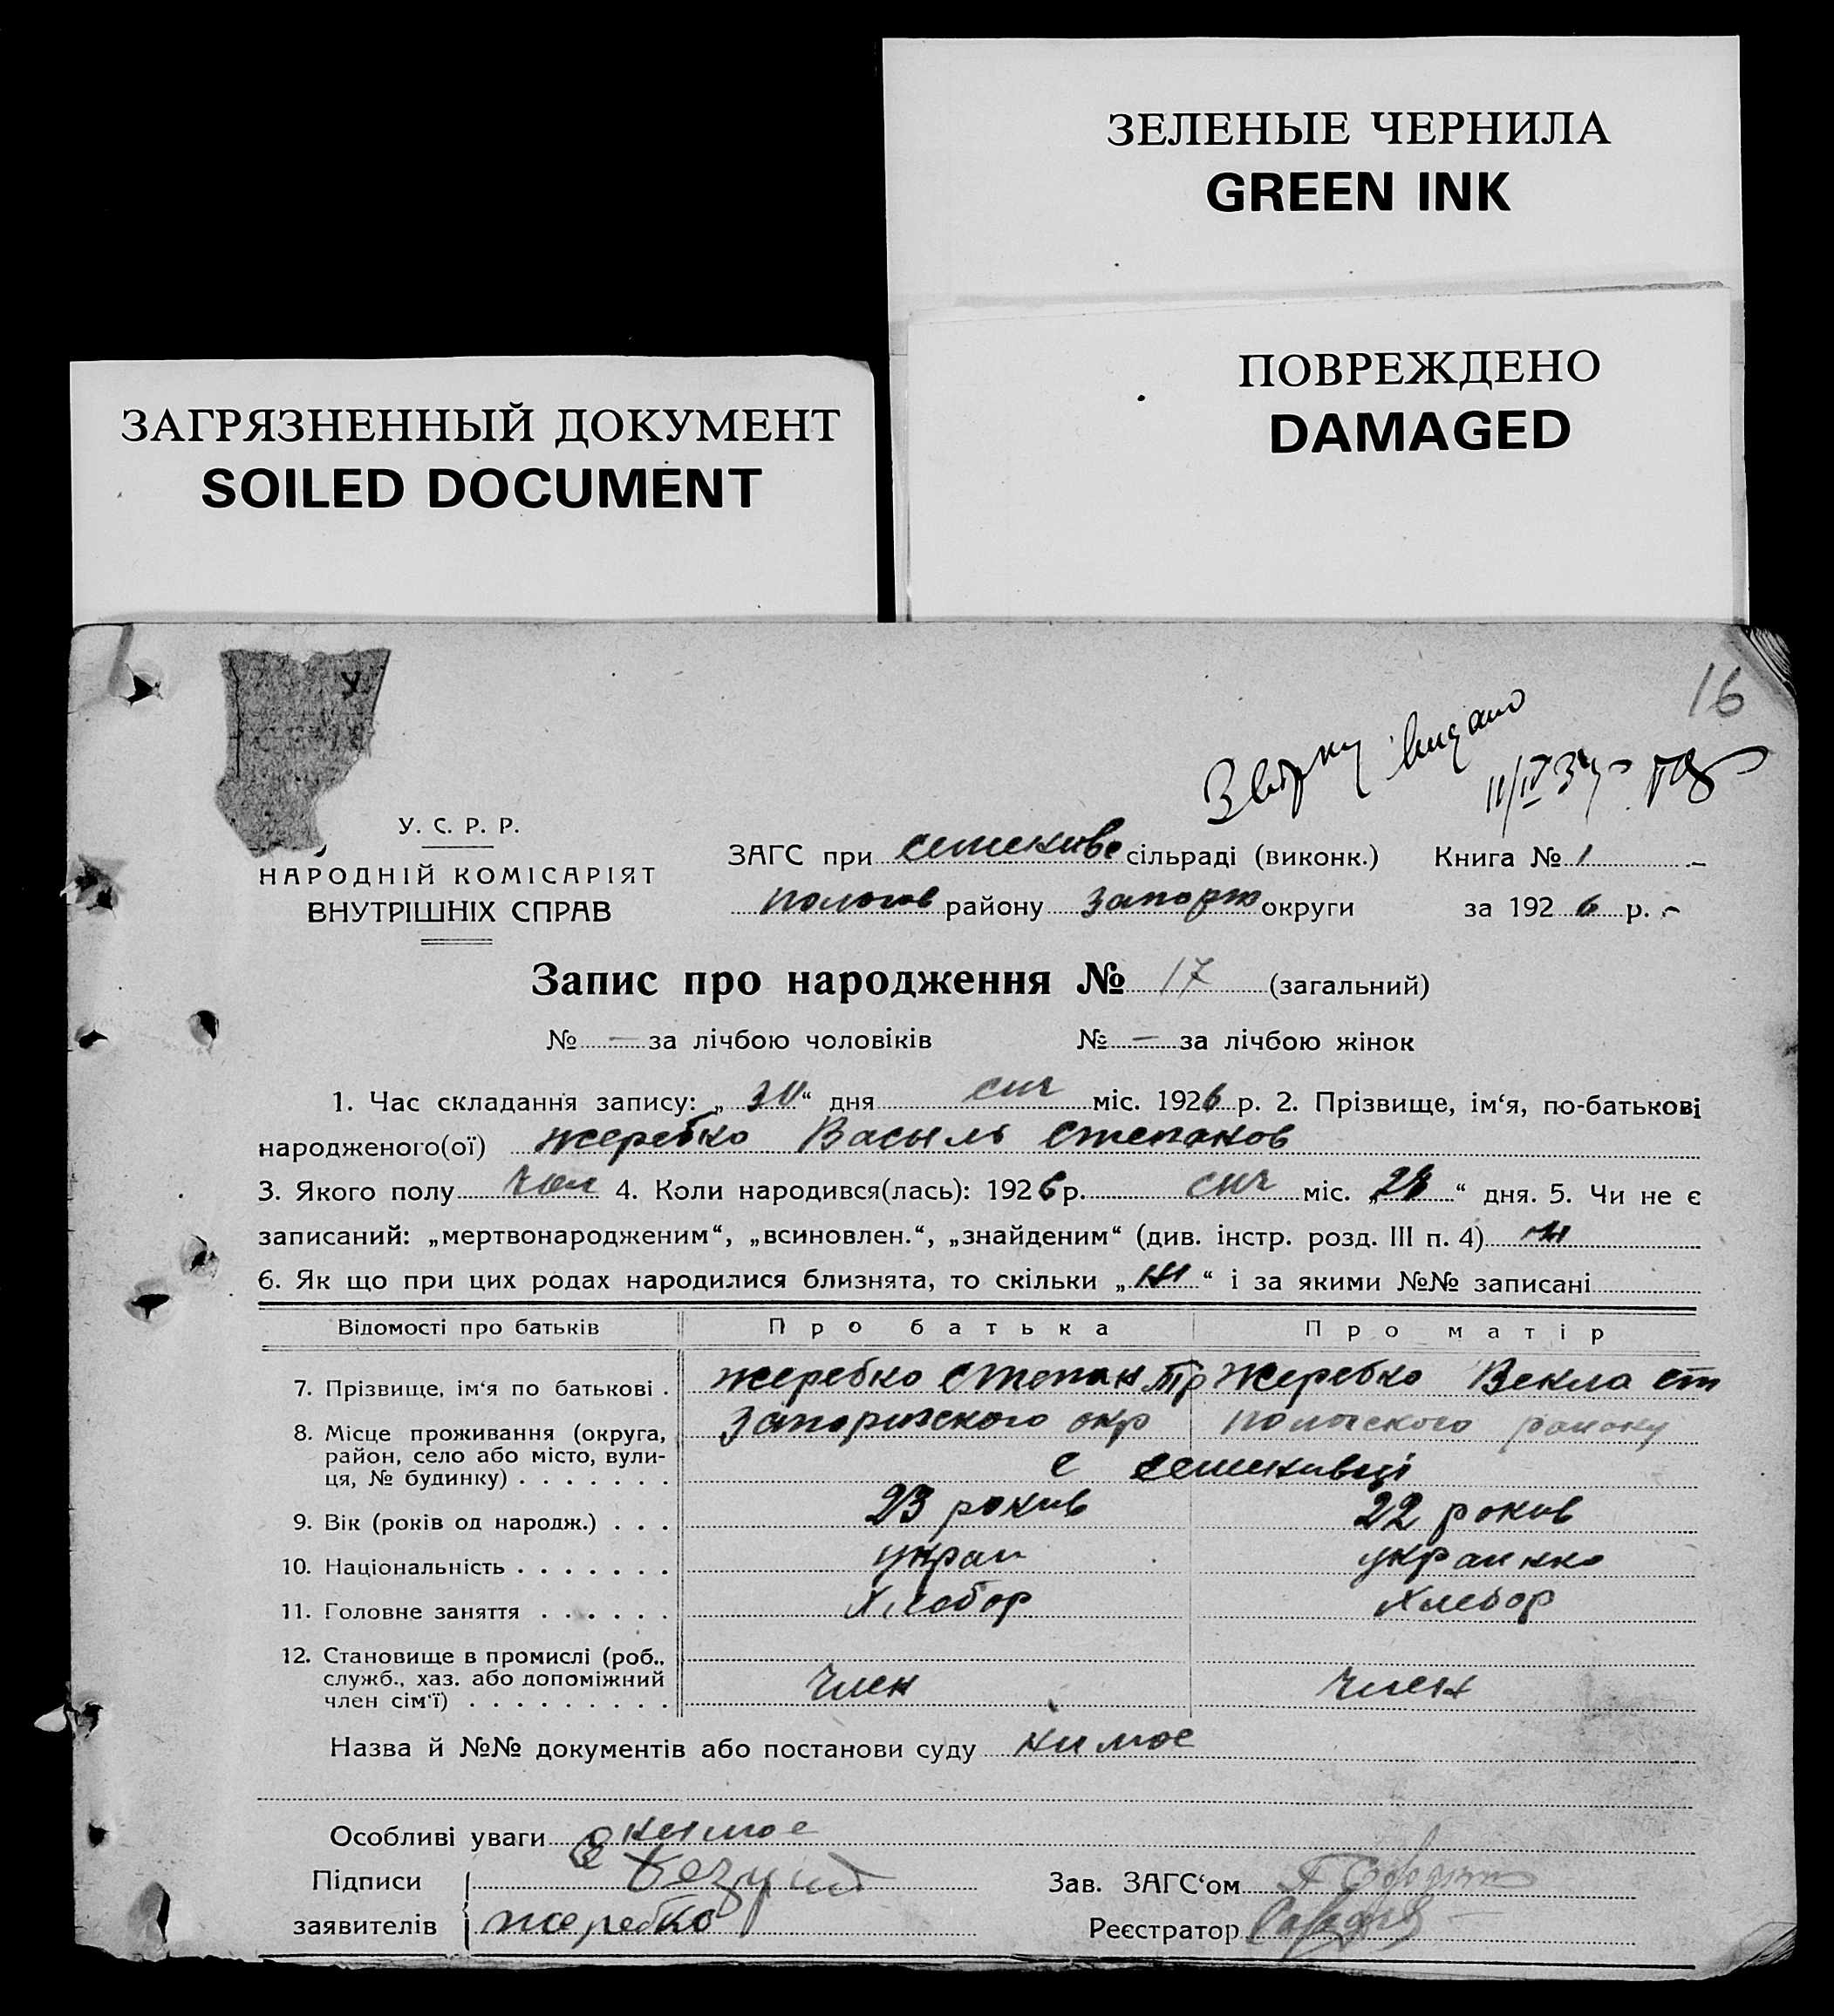 ЗЕЛЕНЫЕ ЧЕРНИЛА
GREEN INK
ПОВРЕЖДЕНО
DAMAGED
ЗАГРЯЗНЕННЫЙ ДОКУМЕНТ
SOILED DOCUMENT
16
видано
11/IV 34
У. С. Р. Р.
НАРОДНІЙ КОМІСАРІЯТ
ВНУТРІШНІХ СПРАВ
ЗАГС при семенивс сільраді (виконк.) Книга № 1
пологов району запорж округи за 1926 р.
Запис про народження № 17 (загальний)
№ — за лічбою чоловіків № — за лічбою жінок
1. Час складання запису: „30“ дня сич міс. 1926 р. 2. Прізвище, ім‘я, по-батькові
народженого(ої) жеребко Васыль степанов
3. Якого полу чол 4. Коли народився(лась): 1926 р. сич міс. „28“ дня. 5. Чи не є
записаний: „мертвонародженим“, „всиновлен.“, „знайденим“ (див. інстр. розд. III п. 4) ни
6. Як що при цих родах народилися близнята, то скільки „ни“ і за якими №№ записані
Відомості про батьків Про батька Про матір
7. Прізвище, ім‘я по батькові . жеребко степан тр Жеребко Векла ст
8. Місце проживання (округа, район, село або місто, вулиця, № будинку) . . . . . . . Запорижского окр пологского району
с семенивці
9. Вік (років од народж.) . . . 23 рокив 22 рокив
10. Національність . . . . . . . украи украинка
11. Головне заняття . . . . . . Хлебор Хлебор
12. Становище в промислі (роб., служб., хаз. або допоміжний член сім‘ї) . . . . . . . . . член член
Назва й №№ документів або постанови суду нимае
Особливі уваги нимае
Підписи
заявителів жеребко
Зав. ЗАГС‘ом
Реєстратор